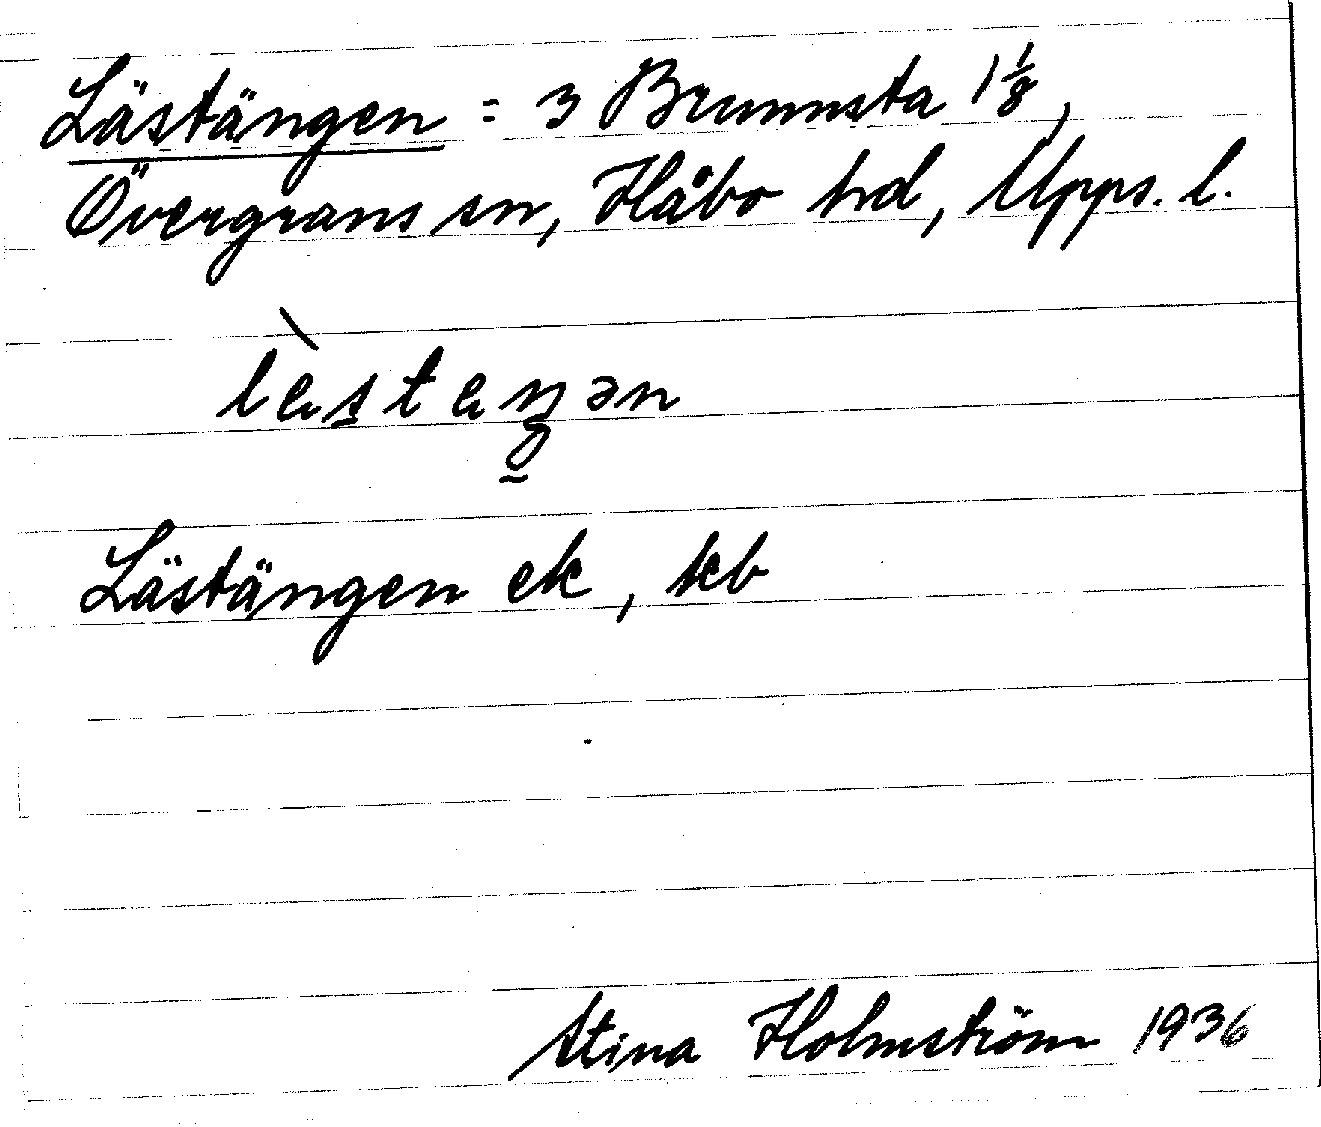 Lästängen = 3 Brunnsta 1 1/8,
Övergrans sn, Håbo hd, Upps. l.
Lästängen ek, kb
Stina Holmström 1936